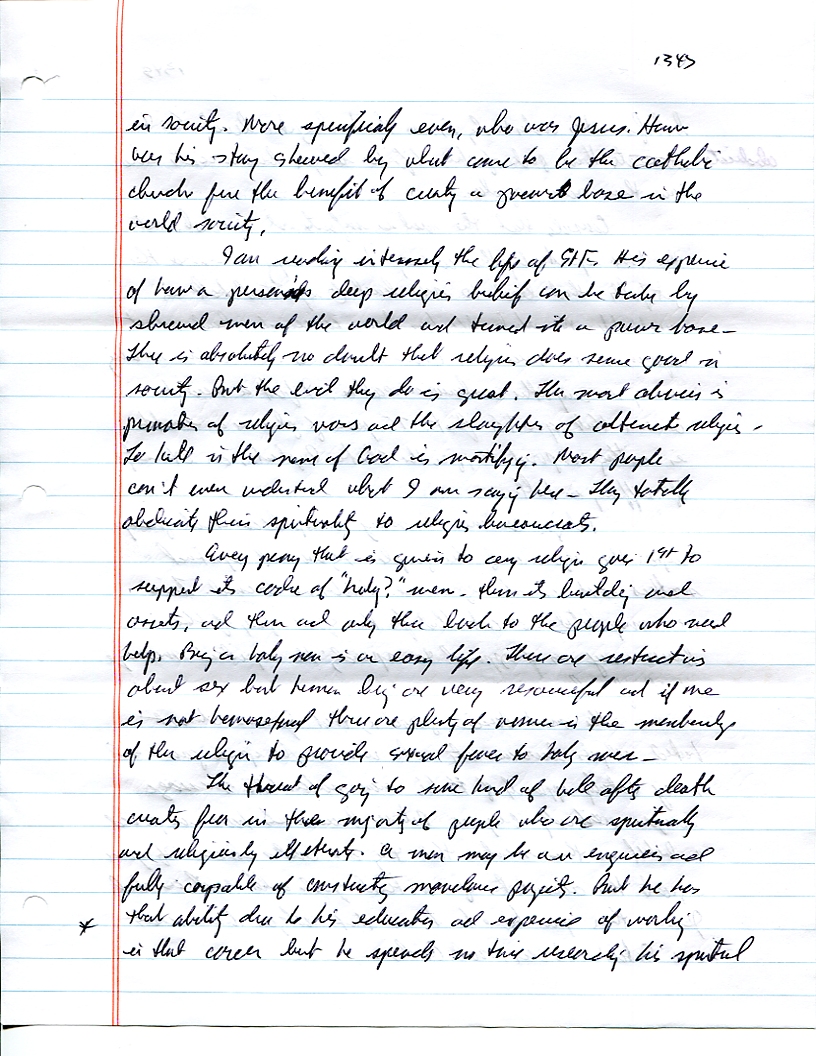 1343
in society. More specifically even, who was Jesus. How
was his story skewed by what came to be the catholic
church for the benefit of creating a power base in the
world society.
I am reading intensely the life of His
of how a persons deep religious belief can be taken by
shrewd men of the world and turned into a power base -
There is absolutely no doubt that religion does some good in
society. But the evil they do is great. The most obvious is
of religious wars and the slaughter of religions -
To kill in the name of God is mortifying. Most people
can't even understand what I am saying here - They totally
abdicate their spirituality to religious bureaucrats.
Every penny that is given to any religion goes 1st to
support its cadre of "holy?" men - then its building and
assets, and then and only then back to the people who need
help. Being a holy man is an easy life. There are restrictions
about sex but human beings are very resourceful and if one
is not homosexual there are plenty of women in the membership
of the religion to provide sexual favors to holy men -
The threat of going to some kind of hell after death
creates fear in the majority of people who are spiritually
and religiously illiterate. A man may be an engineer and
fully capable of constructing marvelous projects. But he has
* that ability due to his education and experience of working
in that career but he spends no time researching his spiritual